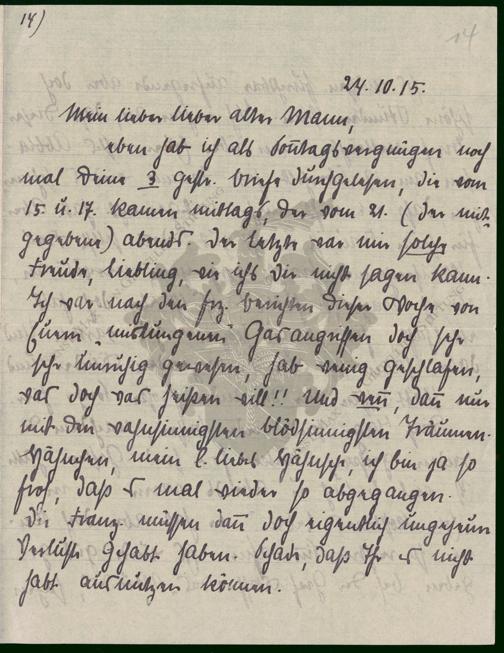 14)
14
24.10.15.
Mein lieber lieber alter Mann,
eben hab ich als Sonntagsvergnügen noch
mal Deine 3 gestr. Briefe durchgelesen, die vom
15 u. 17. kamen mittags, der vom 21. (der mit-
gegebene) abends. Der letzte war mir solche
Freude, Liebling, wie ichs Dir nicht sagen kann.
Ich war nach den frz. Berichten dieser Woche von
Euern "mislungenen" Gasangriffen doch sehr
sehr unruhig gewesen, hab wenig geschlafen,
was doch was heißen will!! Und wenn, dann nur
mit den wahnsinnigsten blödsinnigsten Träumen.
mein l. liebs ich bin ja so
froh, daß es mal wieder so abgegangen.
Die Franz. müssen dann doch eigentlich ungeheure
Verluste gehabt haben. Schade, daß Ihr es nicht
habt ausnutzen können.